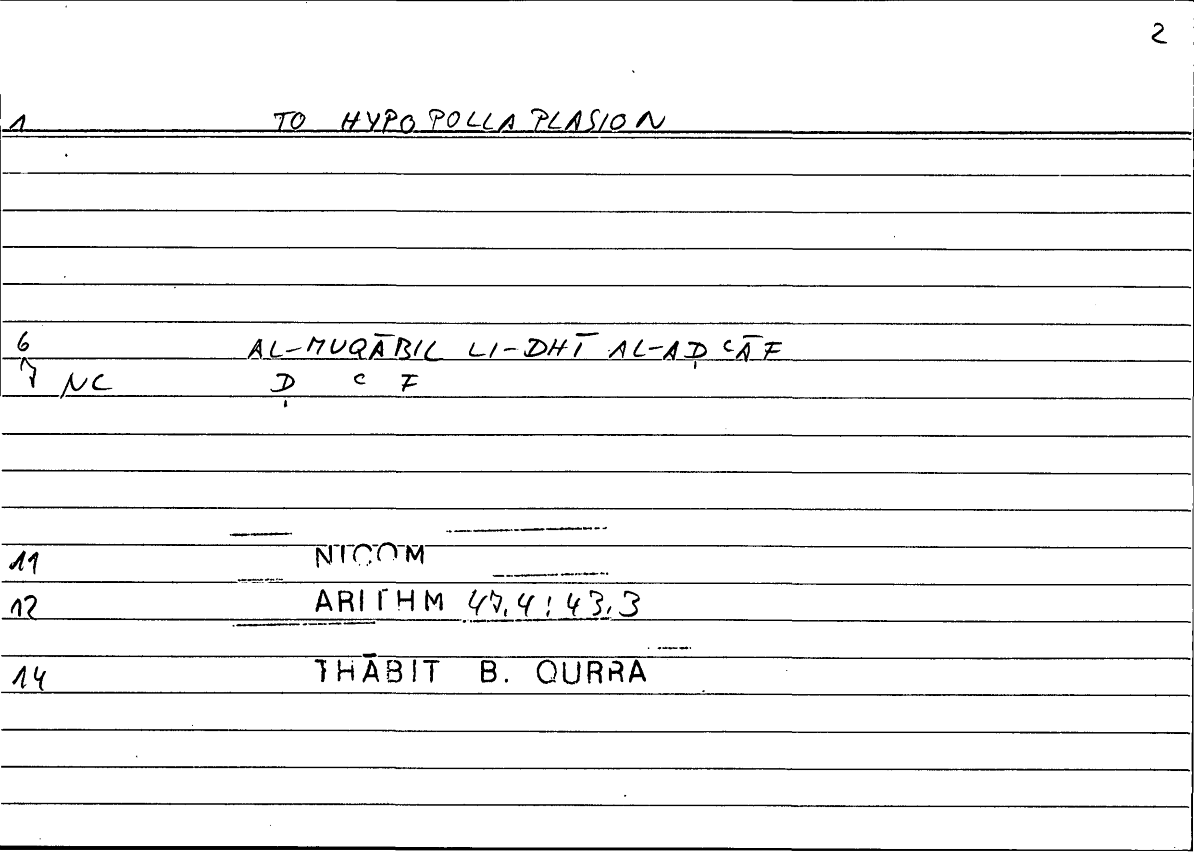 2
1 TO HYPOPOLLAPLASION
6 AL-MUQĀBIL LI-DHĪ AL-AḌʿĀF
7 NC Ḍ ʿ F
11 NICOM
12 ARITHM 47,4 : 43,3
14 THĀBIT B. QURRA